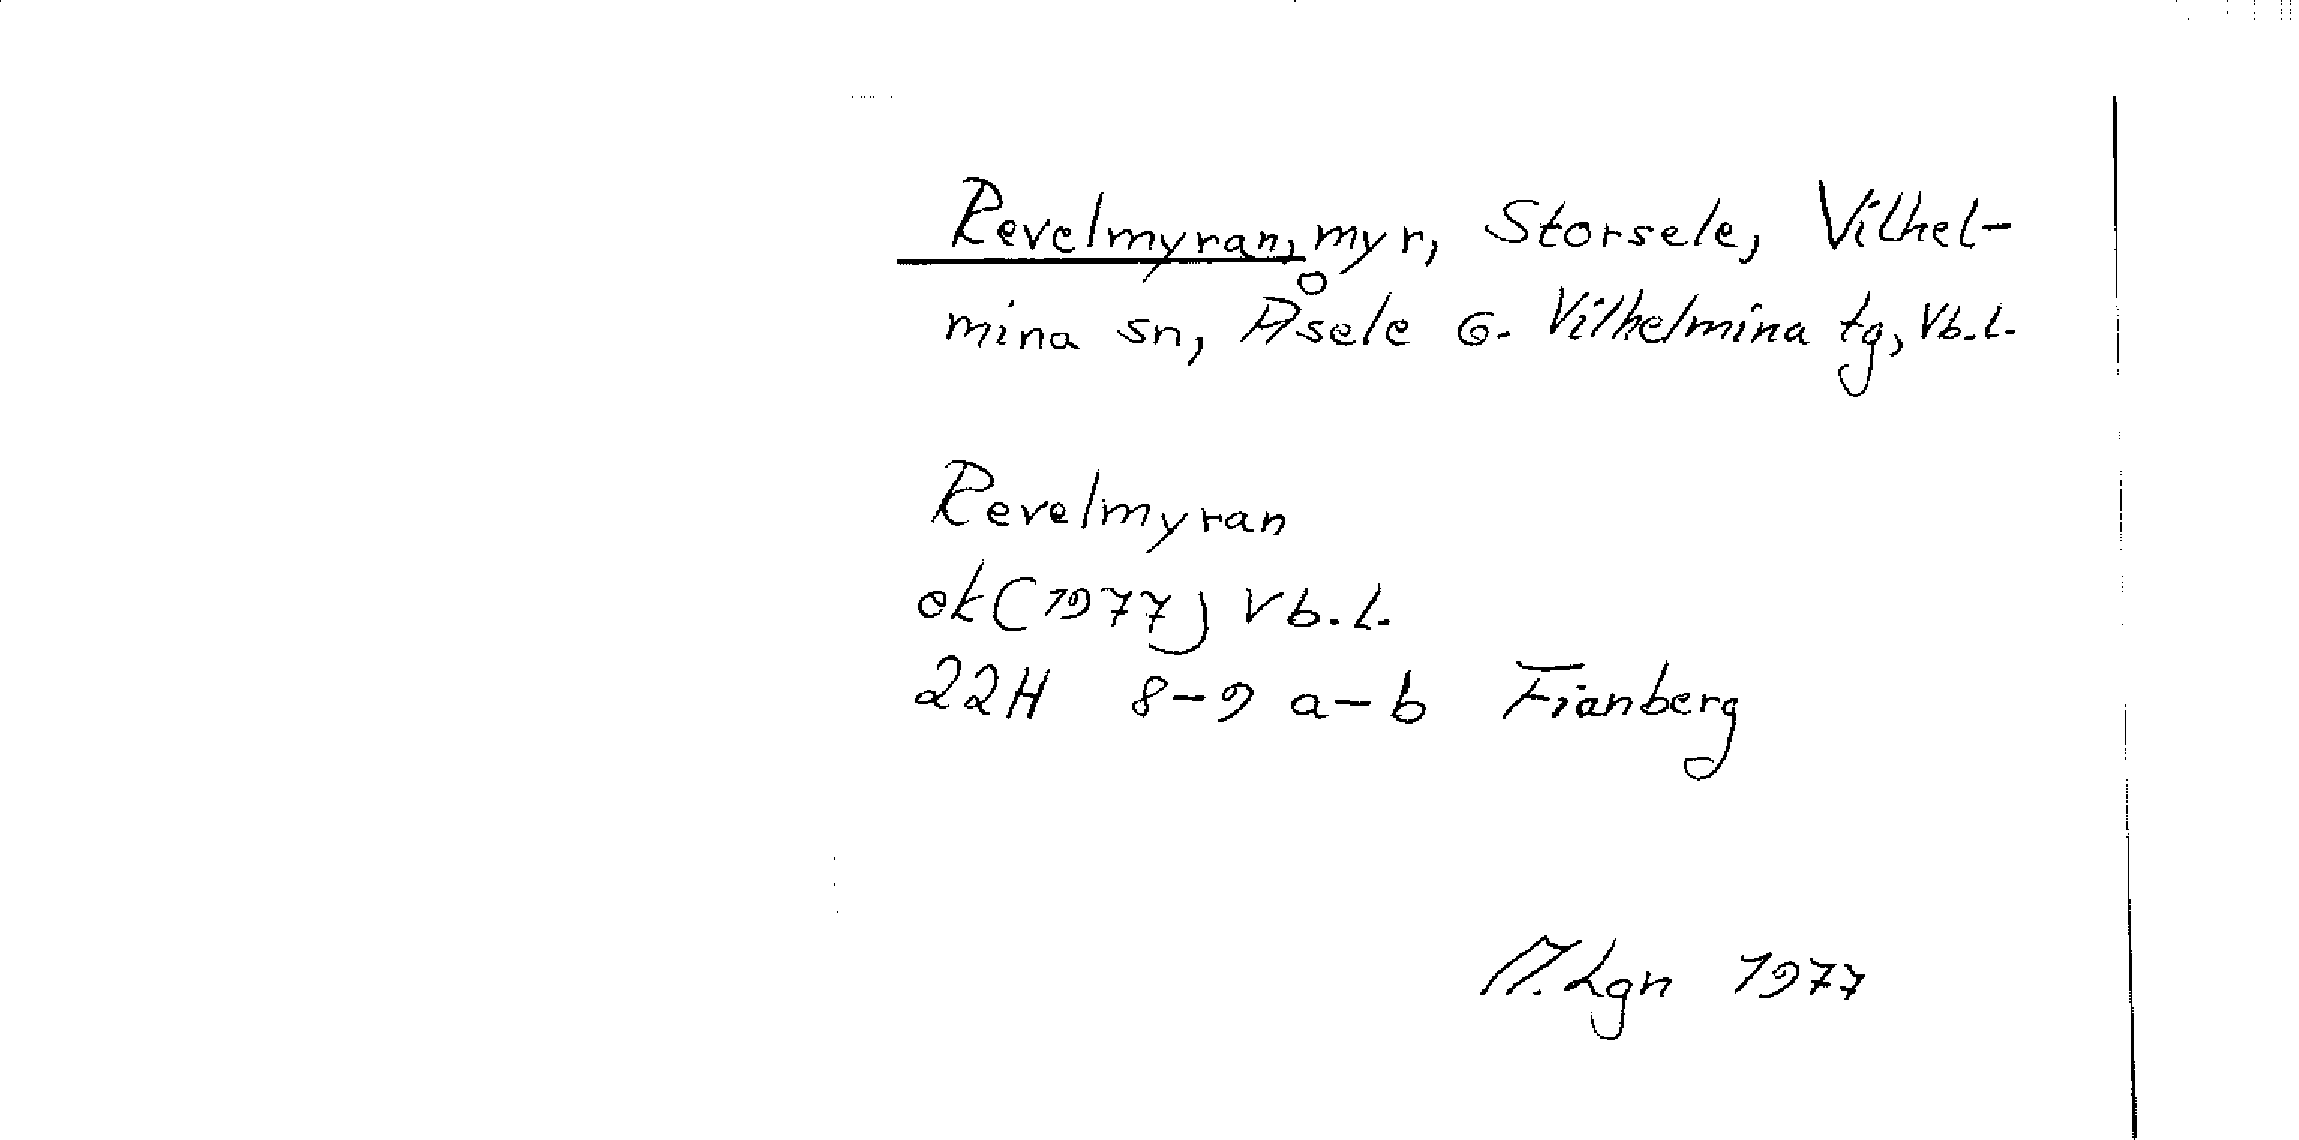 Revelmyran, myr, Storsele, Vilhel-
mina sn, Åsele o. Vilhelmina tg, Vb.l.
Revelmyran
ek (1977) Vb.l.
22H 8-9 a-b Fianberg
M. Lgn 1977